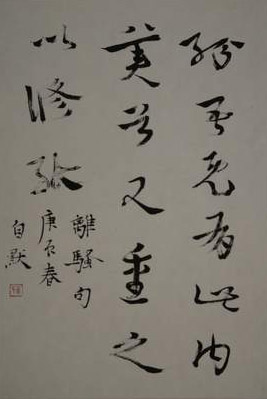 紛吾既有此内
美兮又重之
以修能
離騷句
庚辰春
自默